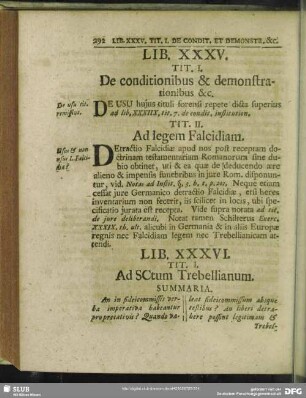 292 LIB. XXXV. TIT. I. DE CONDIT. ET DEMONSTR. &c.
LIB. XXXV.
TIT. I.
De conditionibus & demonstra-
tionibus &c.
De usu tit.
DE USU hujus tituli forensi repete dicta superius
ad lib. XXXIIX, tit. 7. de condit. institution.
TIT. II.
Ad legem Falcidiam.
Usus & non
usus l. Falci-
diæ?
DEtractio Falcidiæ apud nos post receptam do-
ctrinam testamentariam Romanorum sine du-
bio obtinet, uti & ea quæ de deducendo ære
alieno & impensis funebribus in jure Rom. disponun-
tur, vid. Notas ad Instit. Neque etiam
cessat jure Germanico detractio Falcidiæ, etsi heres
inventarium non fecerit, iis scilicet in locis, ubi spe-
cificatio jurata est recepta. Vide supra notata ad tit.
de jure deliberandi. Notat tamen Schilterus Exerc.
XXXIX. th. ult. alicubi in Germania & in aliis Europæ
regnis nec Falcidiam legem nec Trebellianicam at-
tendi.
LIB. XXXVI.
TIT. I.
Ad SCtum Trebellianum.
SUMMARIA.
An in fideicommissis ver-
ba imperativa habeantur
pro precativis? Quando va-
leat fideicommissum absque
testibus? an liberi detra-
here possint legitimam &
Trebel-
SLUB
Wir führen Wissen.
gefördert von der
Deutschen Forschungsgemeinschaft
DFG